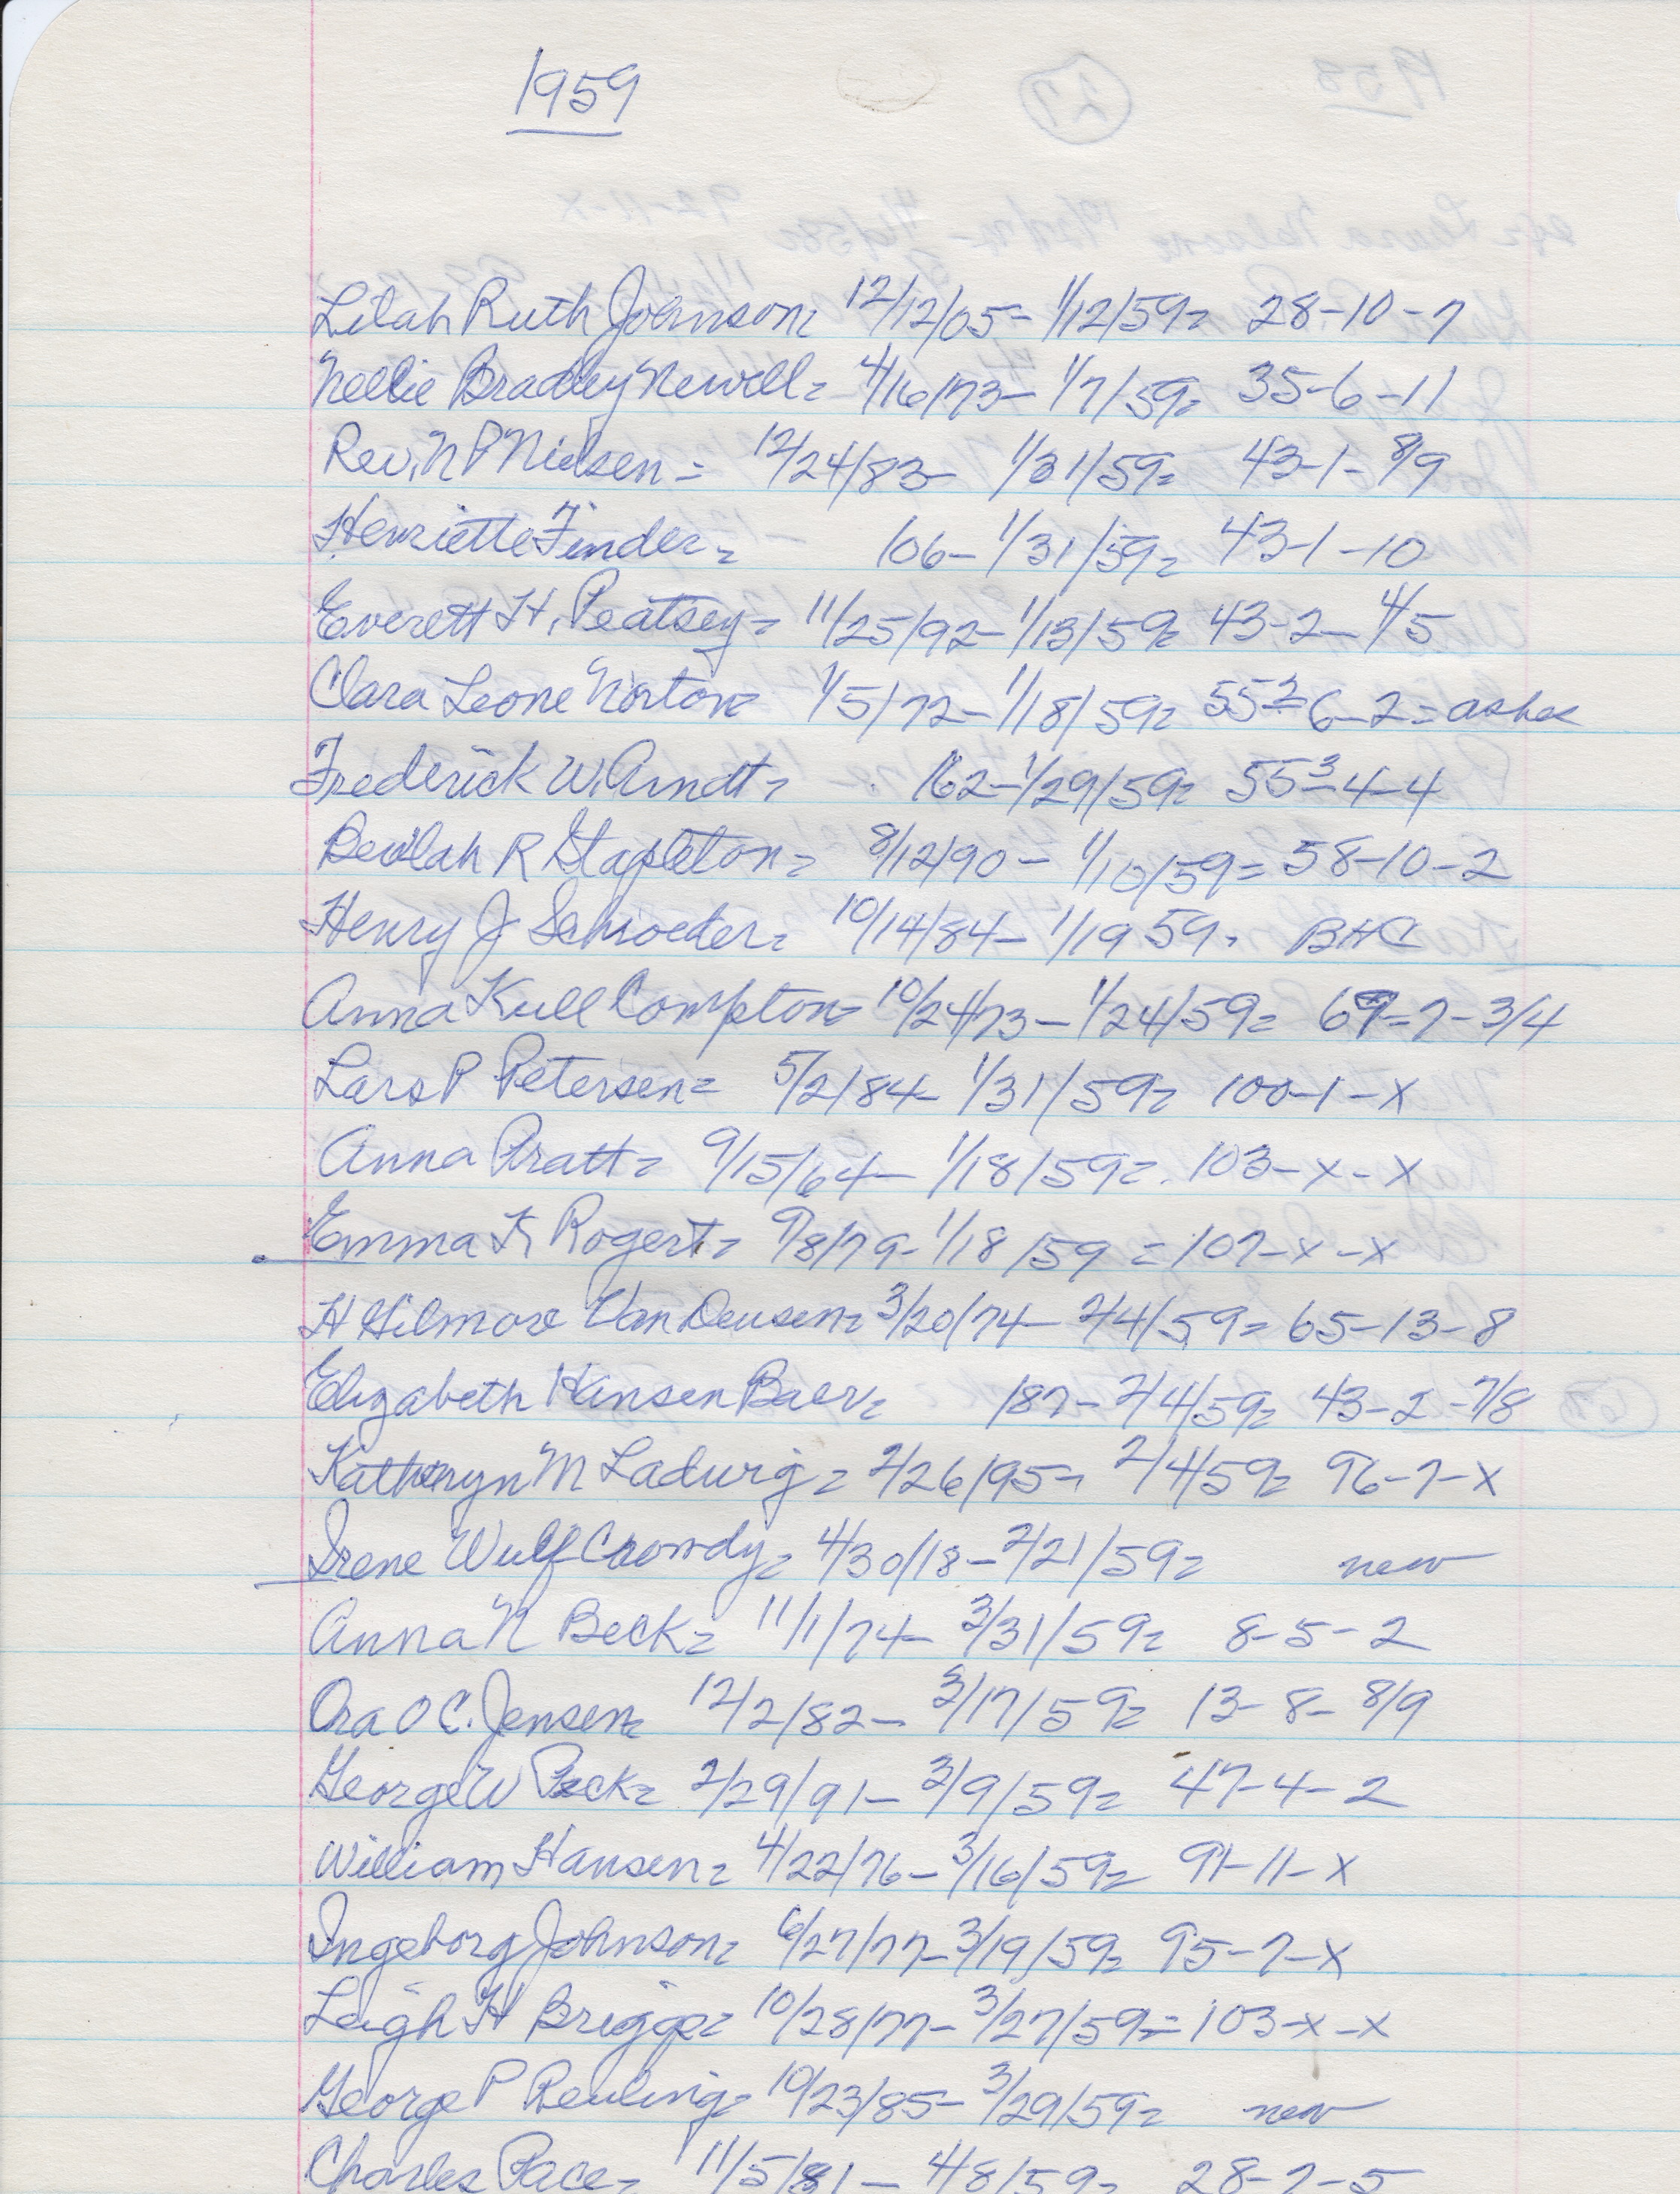 1959
27
Lilah Ruth Johnson= 12/12/05- 1/12/59= 28-10-7
Nellie Bradley Newell= 4/16/73- 1/7/59= 35-6-11
Rev. N P Nielsen= 12/24/83- 1/31/59= 43-1-8/9
Henriette Finder= /06- 1/31/59= 43-1-10
Everett H. Peatsey= 11/25/92- 1/13/59= 43-2-4/5
Clara Leone Norton= 1/5/72- 1/18/59= 55²-6-2=ashes
Frederick W. Arndt= /62- 1/29/59= 55³-4-4
Beulah R Stapleton= 8/12/90- 1/10/59= 58-10-2
Henry J Schroeder= 10/14/84- 1/19 59= BHC
Anna Kull Compton= 10/24/73- 1/24/59= 69-7-3/4
Lars P Petersen= 5/2/84- 1/31/59= 100-1-X
Anna Pratt= 9/15/64- 1/18/59= 103-X-X
Emma K Rogert= 9/8/79- 1/18/59=107-X-X
H Gilmore Van Deusen= 3/20/74- 2/4/59= 65-13-8
Elizabeth Hansen Baer= /87- 2/4/59= 43-2-7/8
Katheryn M Ladwig= 2/26/95- 2/4/59= 96-7-X
Irene Wulf Crowdy= 4/30/18- 2/21/59= new
Anna N Beck= 11/1/74- 3/31/59= 8-5-2
Ora O C. Jensen= 12/2/82- 3/17/59= 13-8-8/9
George W Peck= 2/29/91- 3/9/59= 47-4-2
William Hansen= 4/22/76- 3/16/59= 91-11-X
Ingeborg Johnson= 6/27/77- 3/19/59= 95-7-X
Leigh H Briggs= 10/28/77- 3/27/59=103-X-X
George P Reuling= 10/23/85- 3/29/59= new
Charles Pace= 11/5/81- 4/8/59= 28-7-5